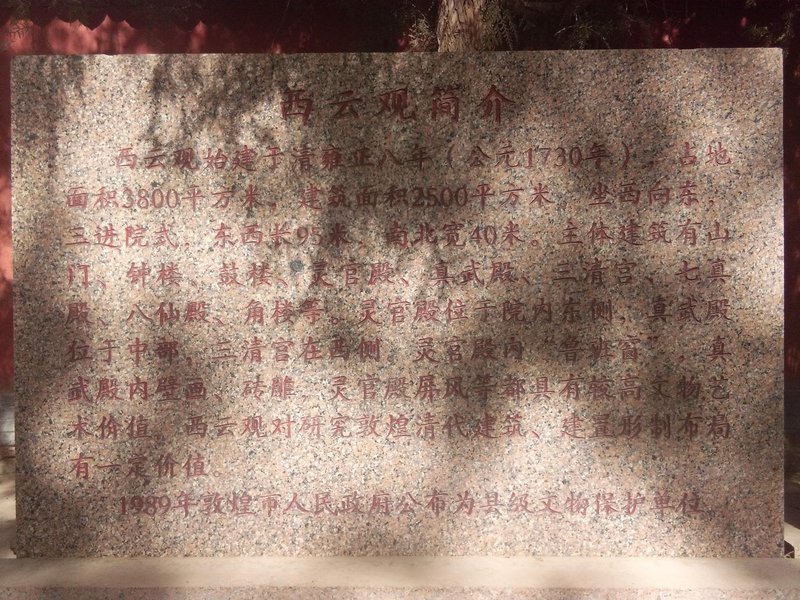 西云观简介
西云观始建于清雍正八年（公元1730年），占地
面积3800平方米，建筑面积2500平方米。坐西向东，
三进院式，东西长95米，南北宽40米。主体建筑有山
门、钟楼、鼓楼、灵官殿、真武殿、三清宫、七真
殿、八仙殿、角楼等。灵官殿位于院内东侧，真武殿
位于中部，三清宫在西侧。灵官殿内“鲁班窗”，真
武殿内壁画、砖雕，灵官殿屏风等都具有较高文物艺
术价值。西云观对研究敦煌清代建筑、建置形制布局
有一定价值。
1989年敦煌市人民政府公布为县级文物保护单位。